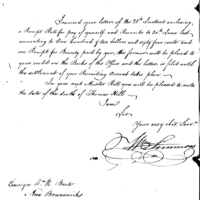 I received your letter of the 28th Instant enclosing
a Receipt Roll for pay of yourself and Recruits to 30th June last
amounting to One hundred & two dollars and sixty four cents and
on Receipt for Bounty paid by you, the former will be placed to
your credit on the Books of this Office and the letter is filed until
the settlement of your Recruiting Account takes place
In your next Muster Roll you will be pleased to note
the date of the death of Thomas Hill.
I am
Sir
Your very obt. Serv.
Wm Simmons
Ensign
New Brunswick